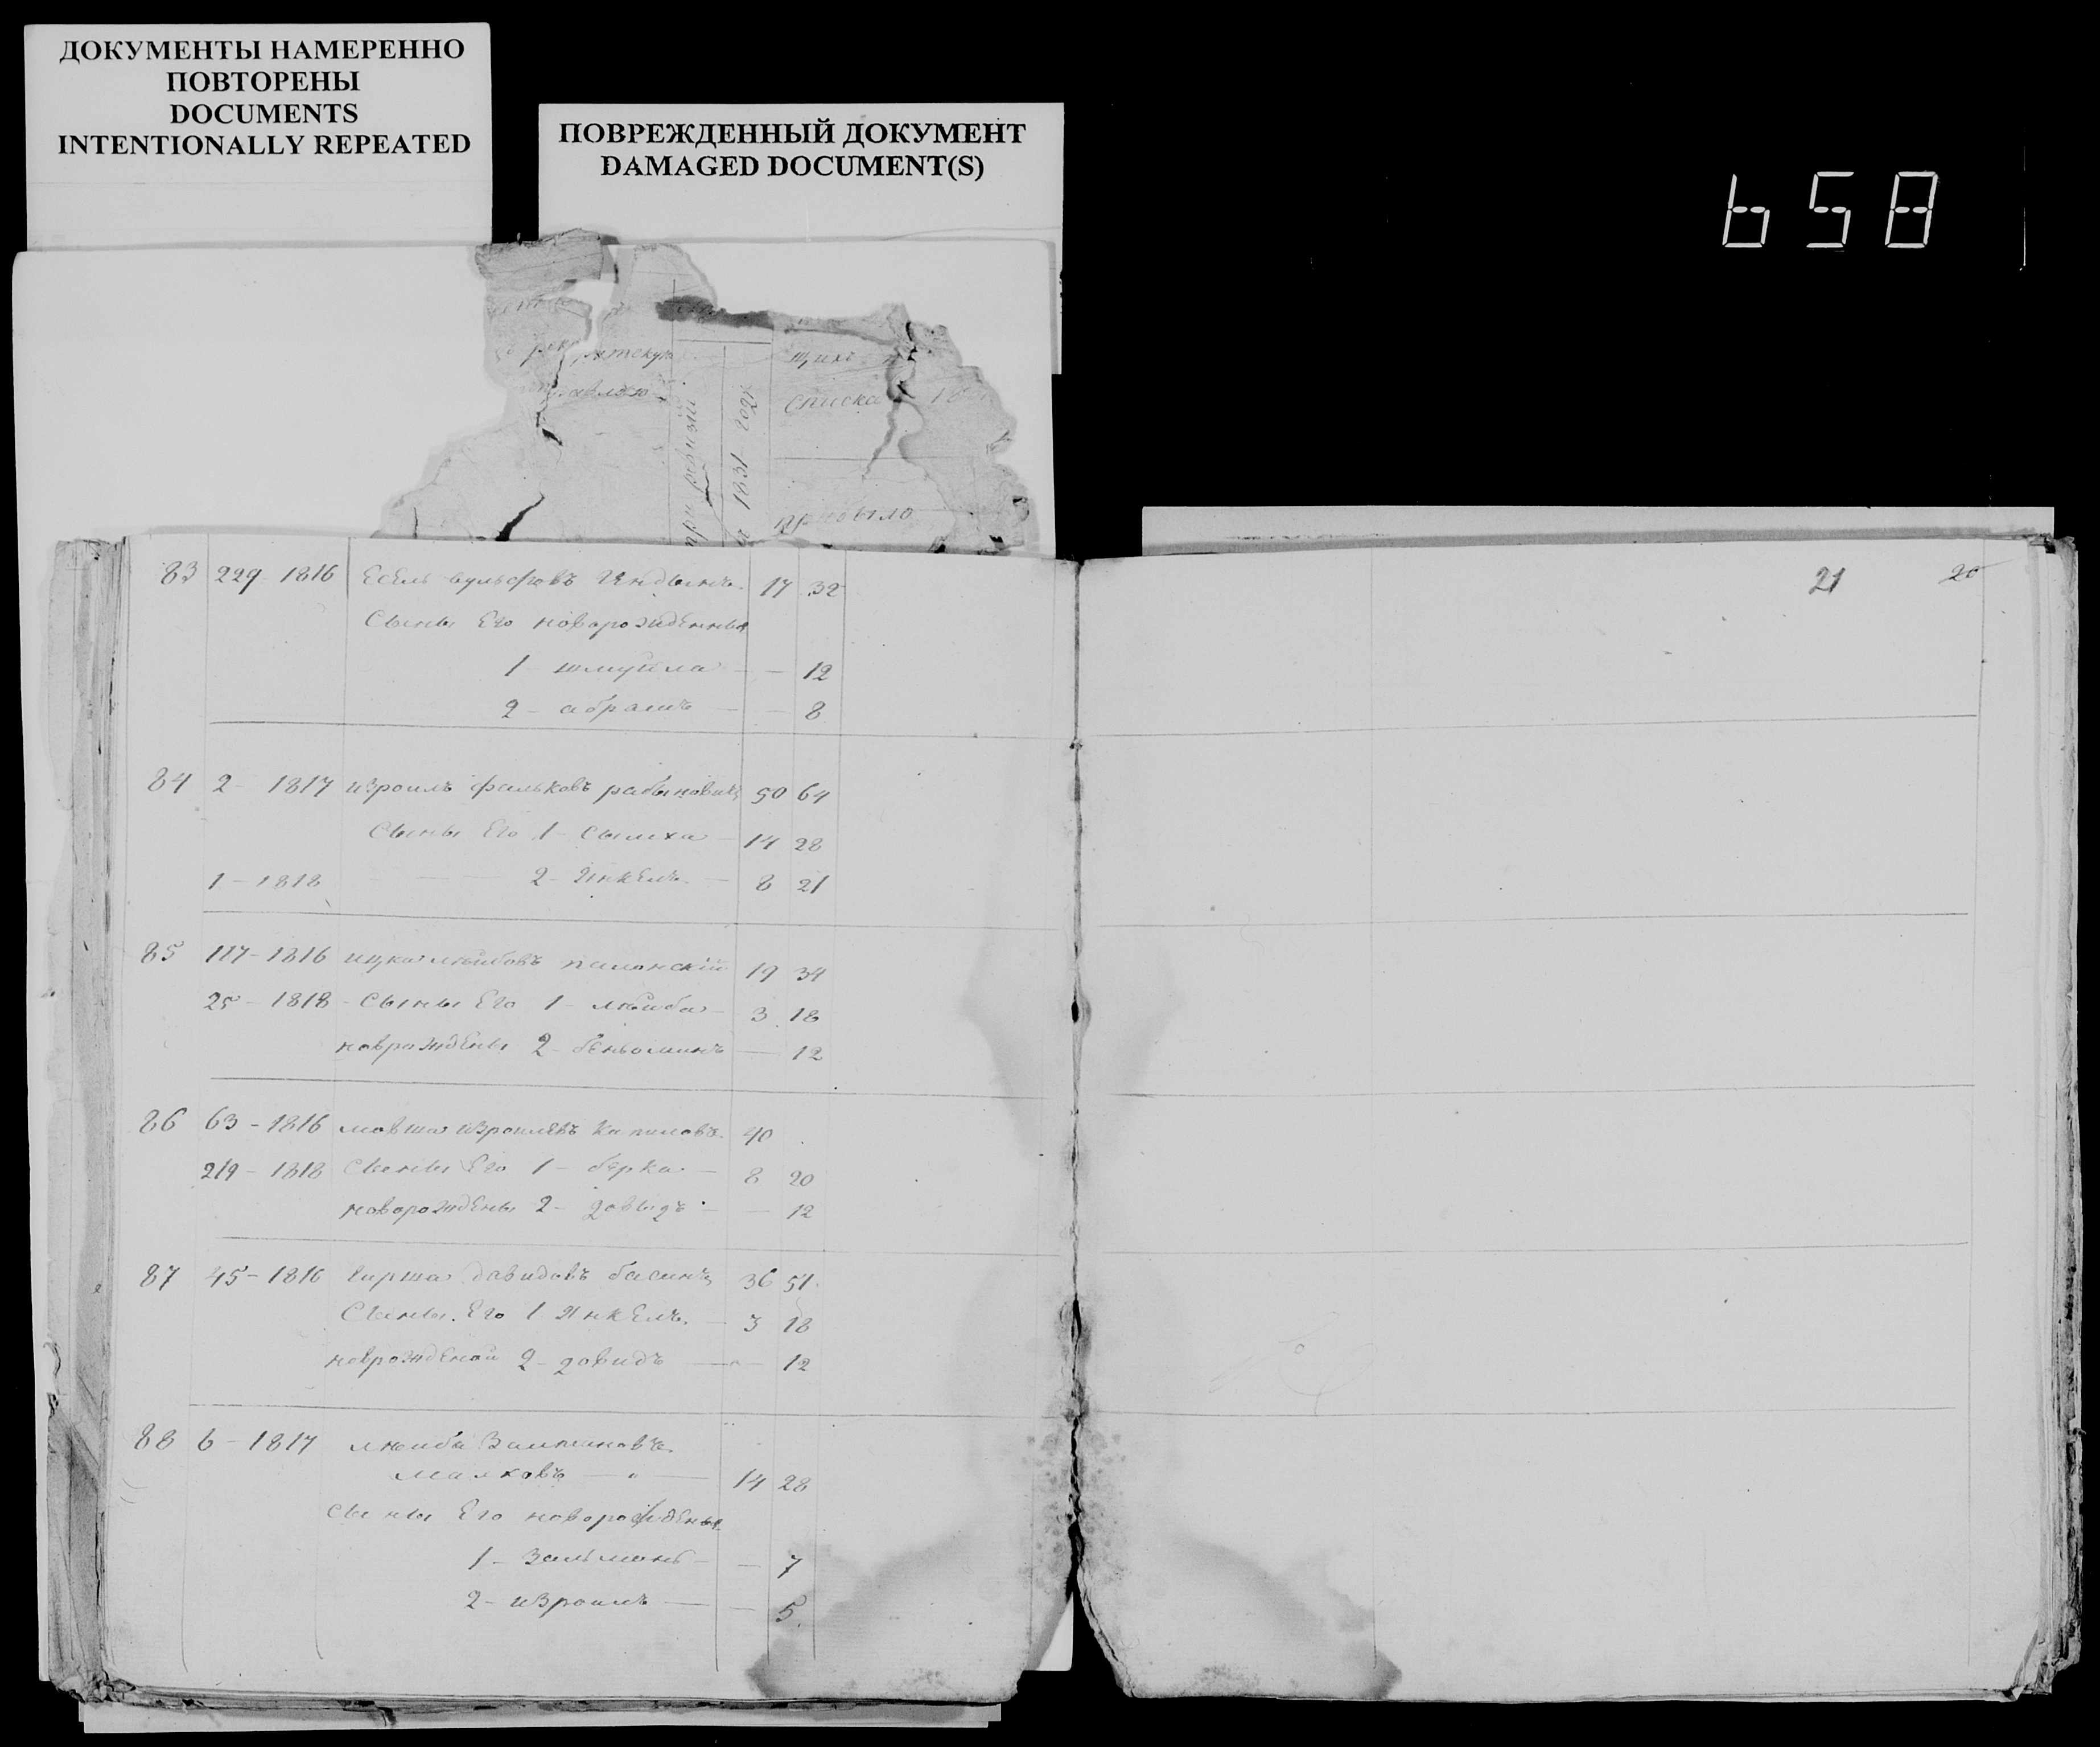 ДОКУМЕНТЫ НАМЕРЕННО
ПОВТОРЕНЫ
DOCUMENTS
INTENTIONALLY REPEATED
ПОВРЕЖДЕННЫЙ ДОКУМЕНТ
DAMAGED DOCUMENT(S)
658
щихъ
списка
при ревизіи
1831 года
прибыло
21 20
83 229 1816 Есель вульфовъ 17 32
Сыны Его новорожденныя
1 - шмуйла - - 12
2 - абрамъ - - 8
84 2 - 1817 изроиль фальковъ рабыновичъ 50 64
Сыны Его 1 - сымха - 14 28
1 - 1818 2 - Янкель - 8 21
85 117 - 1816 ицка лейбовъ полонскій 19 34
25 - 1818 - Сыны Его 1 - лейба - 3 18
новрождены 2 - беньоминъ - 12
86 63 - 1816 мовша изроилевъ 40
219 - 1818 Сыны Его 1 - берка - 8 20
новорождены 2 - довыдъ - - 12
87 45 - 1816 гирша давидовъ басинъ 36 51
Сыны Его 1 Янкель - 3 18
новрожденой 2 - довидъ - 12
88 6 - 1817 лейба Залмановъ
малковъ - 14 28
сыны Его новорожденыя
1 - Залмонъ - - 7
2 - изроиль - - 5